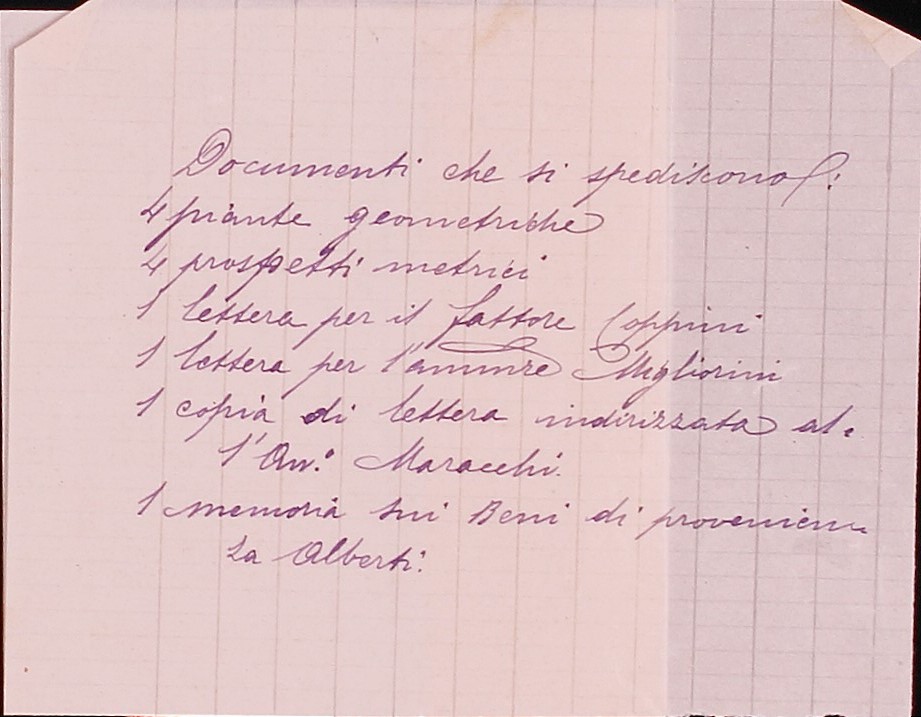 Documenti che si spediscono:
4 piante geometriche
4 prospetti metrici
1 lettera per il fattore Coppini
1 lettera per l'ammre Migliorini
1 copia di lettera indirizzata al-
l'Avv.º Maracchi.
1 memoria sui Beni di provenien-
za Alberti.